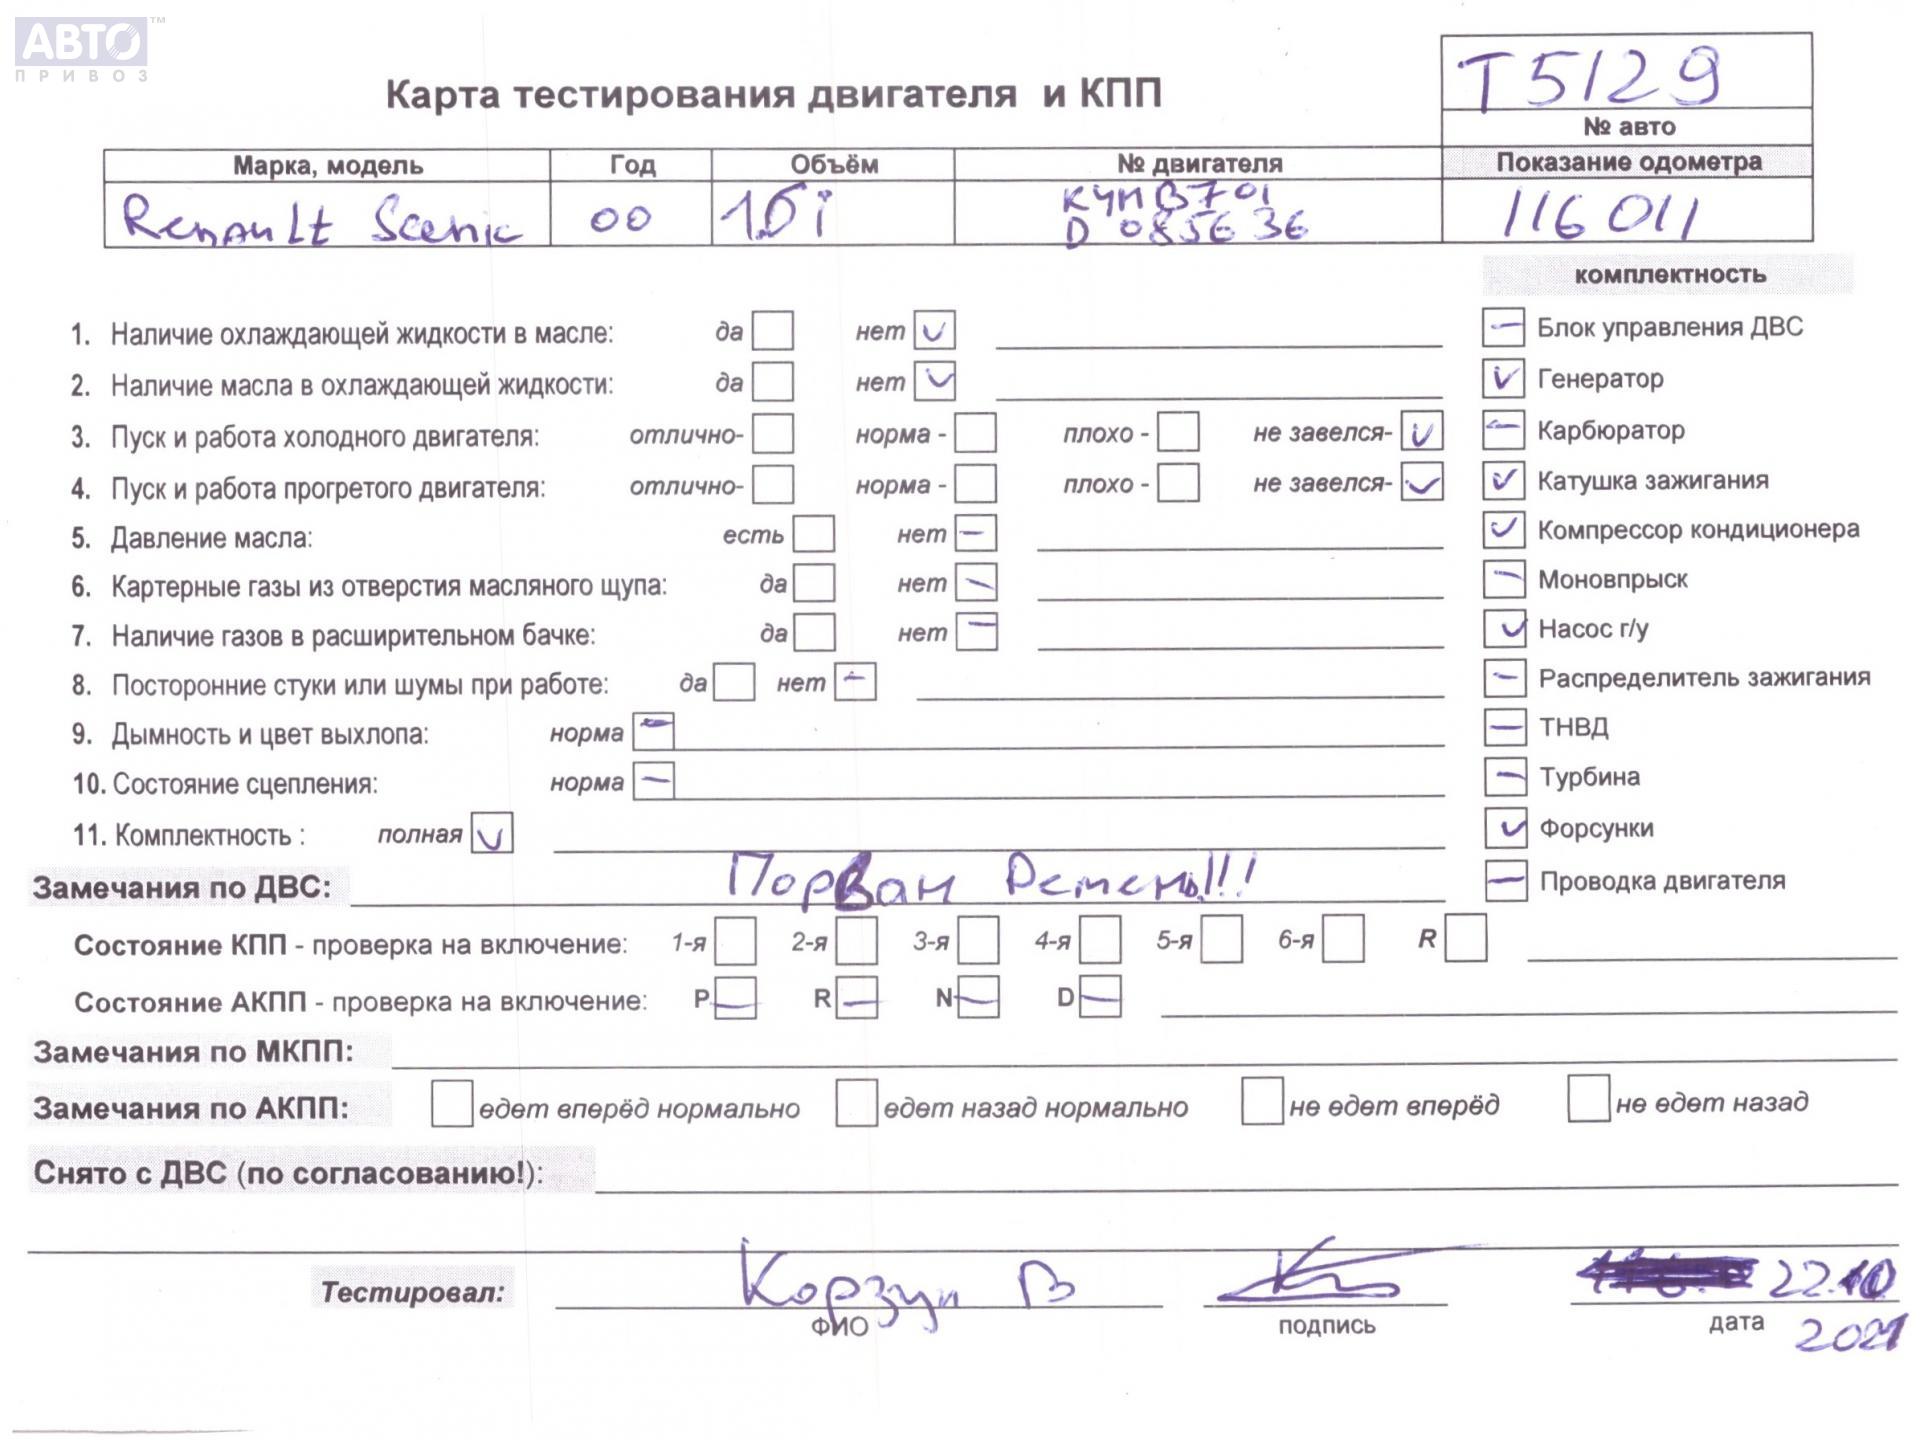 АВТО™
ПРИВОЗ
Карта тестирования двигателя и КПП
T5129
№ авто
Марка, модель Год Объём № двигателя Показание одометра
Renault Scenic 00 1.6i K4M B701 116 011
D 085636
комплектность
1. Наличие охлаждающей жидкости в масле: да нет
Блок управления ДВС
2. Наличие масла в охлаждающей жидкости: да нет
Генератор
3. Пуск и работа холодного двигателя: отлично- норма - плохо - не завелся-
Карбюратор
4. Пуск и работа прогретого двигателя: отлично- норма - плохо - не завелся-
Катушка зажигания
5. Давление масла: есть нет
Компрессор кондиционера
6. Картерные газы из отверстия масляного щупа: да нет
Моновпрыск
7. Наличие газов в расширительном бачке: да нет
Насос г/у
8. Посторонние стуки или шумы при работе: да нет
Распределитель зажигания
9. Дымность и цвет выхлопа: норма
ТНВД
10. Состояние сцепления: норма
Турбина
11. Комплектность : полная
Форсунки
Замечания по ДВС: Порван Ремень!!!
Проводка двигателя
Состояние КПП - проверка на включение: 1-я 2-я 3-я 4-я 5-я 6-я R
Состояние АКПП - проверка на включение: P R N D
Замечания по МКПП:
Замечания по АКПП: едет вперёд нормально едет назад нормально не едет вперёд не едет назад
Снято с ДВС (по согласованию!):
Тестировал: Корзун В 22.10
ФИО подпись дата 2021